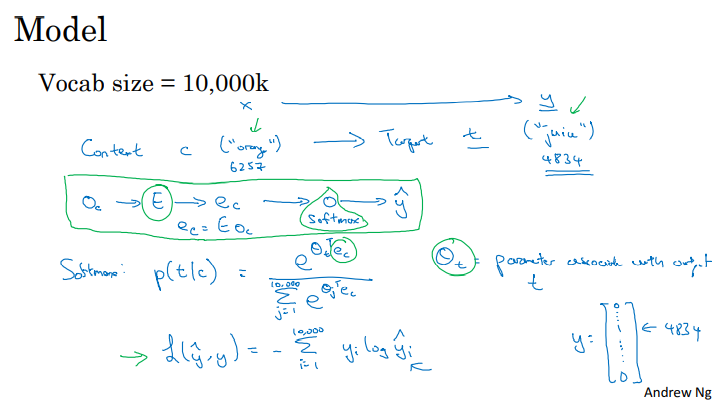 Model
Vocab size = 10,000k
x → y
Context c ("orange") → Target t ("juice")
6257 4834
O_c → E → e_c → O → ŷ
softmax
e_c = E O_c
Softmax: p(t|c) = e^{θ_t^T e_c} / Σ_{j=1}^{10,000} e^{θ_j^T e_c}
θ_t = parameter associated with output t
ℒ(ŷ,y) = - Σ_{i=1}^{10,000} y_i log ŷ_i
y = [0 ⋮ 1 ⋮ 0] ← 4834
Andrew Ng